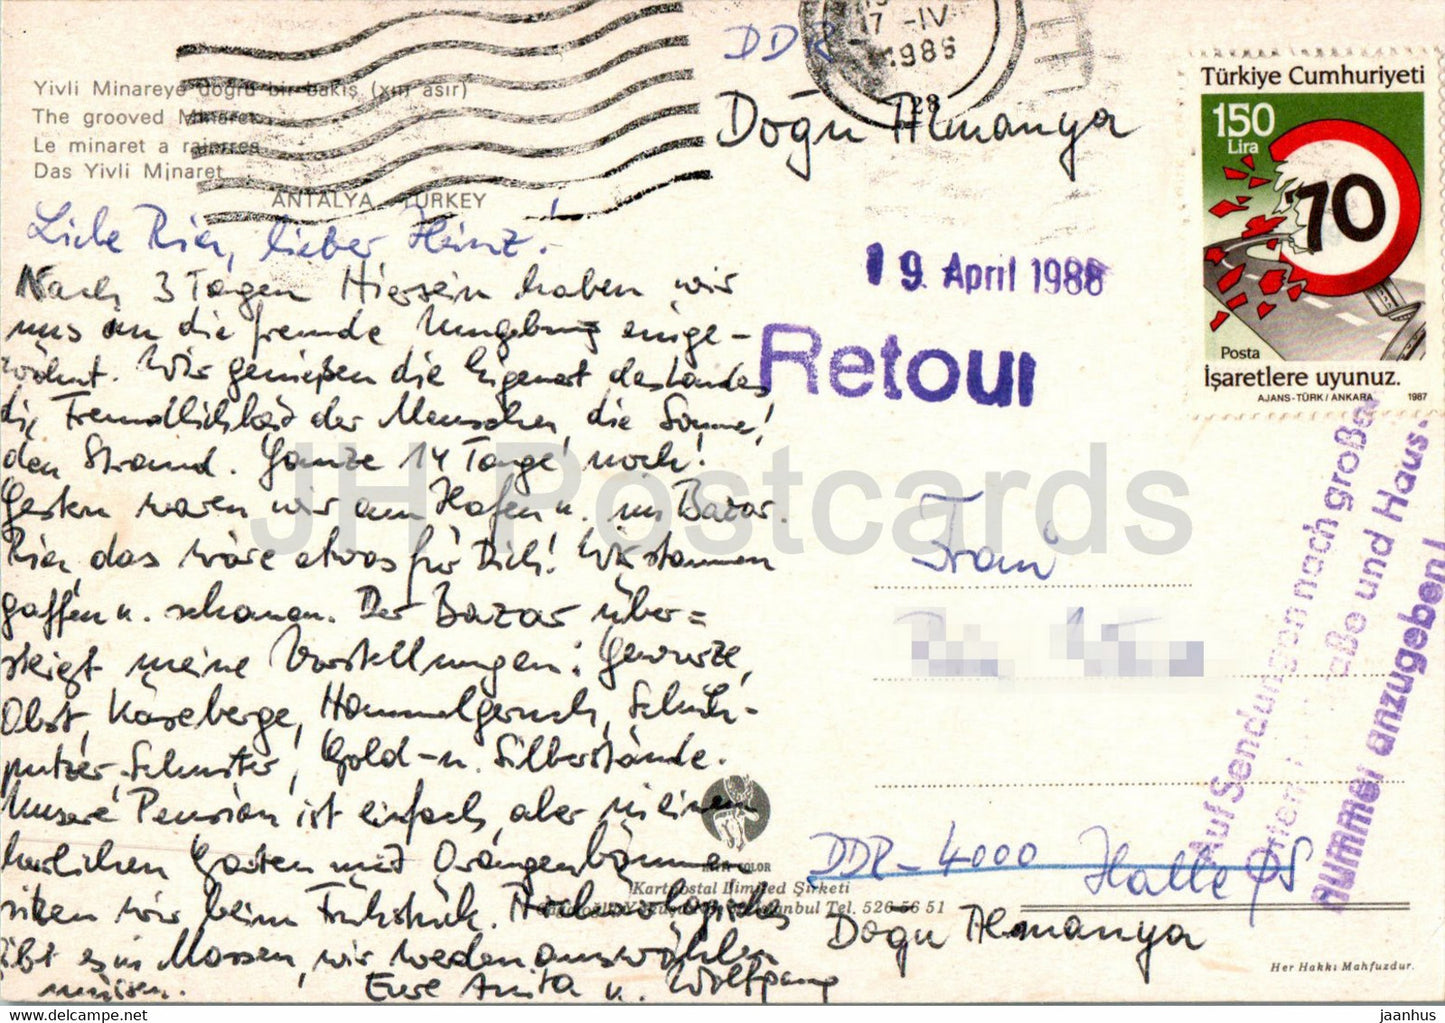 Yivli Minareye doğru bir bakış (xııı asır)
The grooved Minaret
Le minaret a rainrres
Das Yivli Minaret
ANTALYA - TURKEY
Liebe Ria, lieber Heinz!
Nach 3 Tagen Hiersein haben wir
uns an die fremde Umgebung einge-
wöhnt. Wir genießen die Eigenart des Landes,
die Freundlichkeit der Menschen, die Sonne,
den Strand. Ganze 14 Tage noch!
Gestern waren wir am Hafen u. im Bazar.
Ria, das wäre etwas für Dich! Wir staunen
gaffen u. schauen. Der Bazar über=
steigt meine Vorstellungen: Gewürze,
Obst, Käseberge, Hammelgeruch, Schuh-
putzer, Schuster, Gold- u. Silberstände.
Unsere Pension ist einfach, aber in einem
herrlichen Garten mit Orangenbäumen
sitzen wir beim Frühstück.
gibt es in Massen, wir werden auswählen
müssen. Eure Anita u. Wolfgang
DDR
17 -IV
1988
28
Doğu Almanya
Türkiye Cumhuriyeti
150
Lira
70
Posta
İşaretlere uyunuz.
AJANS-TÜRK / ANKARA 1987
19. April 1988
Retour
Auf Sendungen nach großen
Orten ist Straße und Haus-
nummer anzugeben!
Frau
DDR - 4000 Halle
Doğu Almanya
COLOR
Kartpostal Limited Şirketi
İstanbul Tel. 526 56 51
Her Hakkı Mahfuzdur.
JH Postcards
jaanhus.com